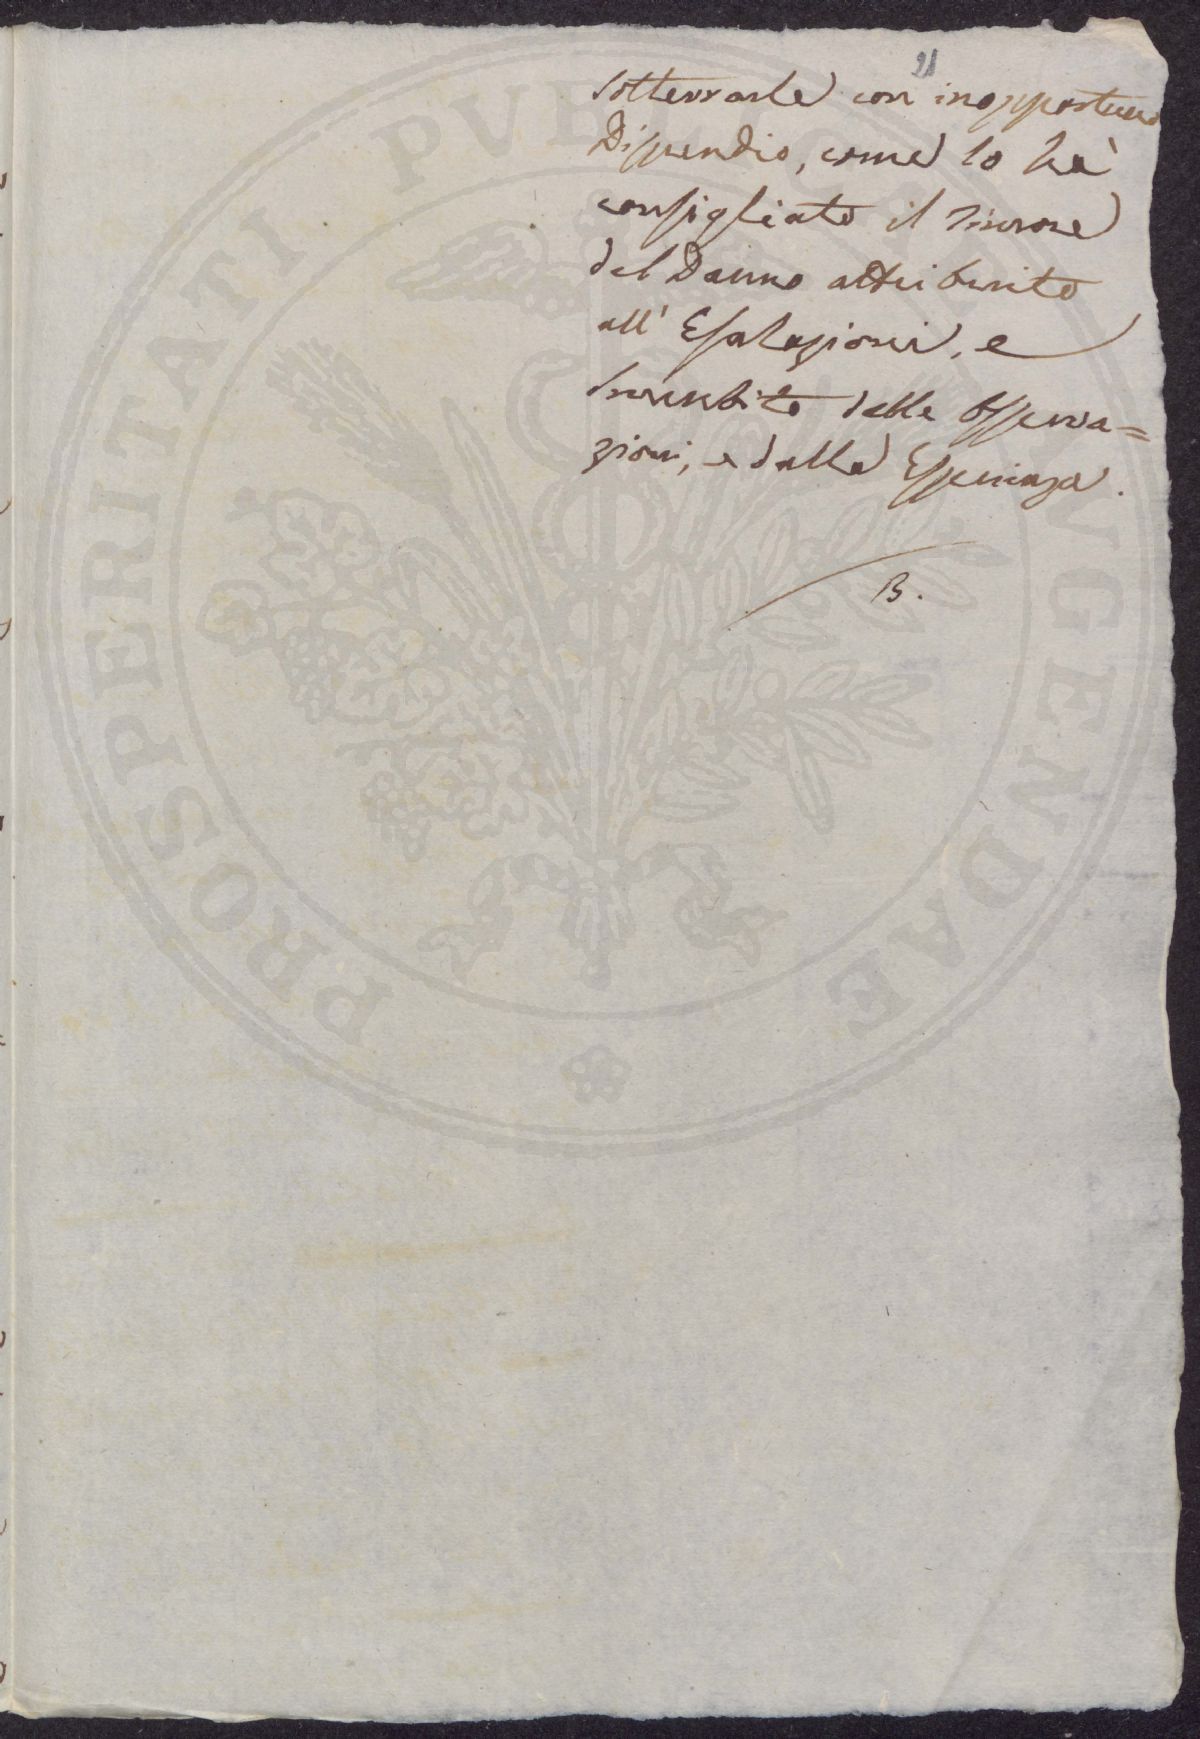 21
sotterrarle con inopportuno
Dispendio, come lo hà
consigliato il timore
del Danno attribuito
all' Esalazioni, e
smentito dalle Osserva=
zioni, e dalla Esperienza.
B.
PROSPERITATI PUBLICAE AVGENDAE